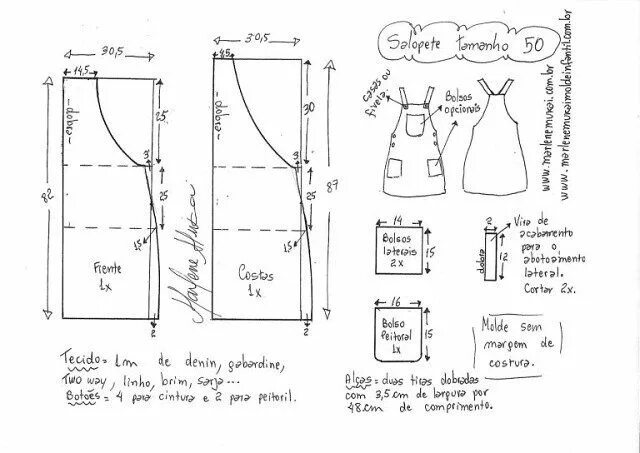 Salopete tamanho 50
30,5
14,5
dobra
25
3
82
25
1,5
Frente
1x
2
30,5
8,5
dobra
30
3
87
25
1,5
Costas
1x
2
Marlene Mukai
casas ou
fivela
Bolsos
opcionais
www.marlenemukai.com.br
www.marlenemukaimoldeinfantil.com.br
14
Bolsos
laterais
2x
15
2
dobra
12
Vira de
acabamento
para o
abotoamento
lateral.
Cortar 2x.
16
Bolso
Peitoral
1x
15
Molde sem
margem de
costura.
Tecido = 1m de denin, gabardine,
Two way, linho, brim, sarja...
Botões = 4 para cintura e 2 para peitoril.
Alças = duas tiras dobradas
com 3,5cm de largura por
48cm de comprimento.